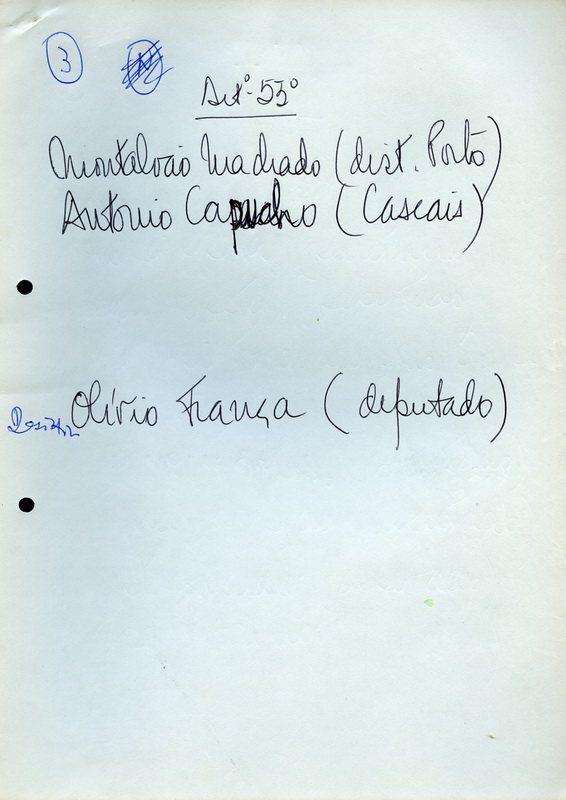 3
Artº. 53º
Montalvão Machado (dist. Porto)
António Capucho (Cascais)
Desistiu Olívio França (deputado)